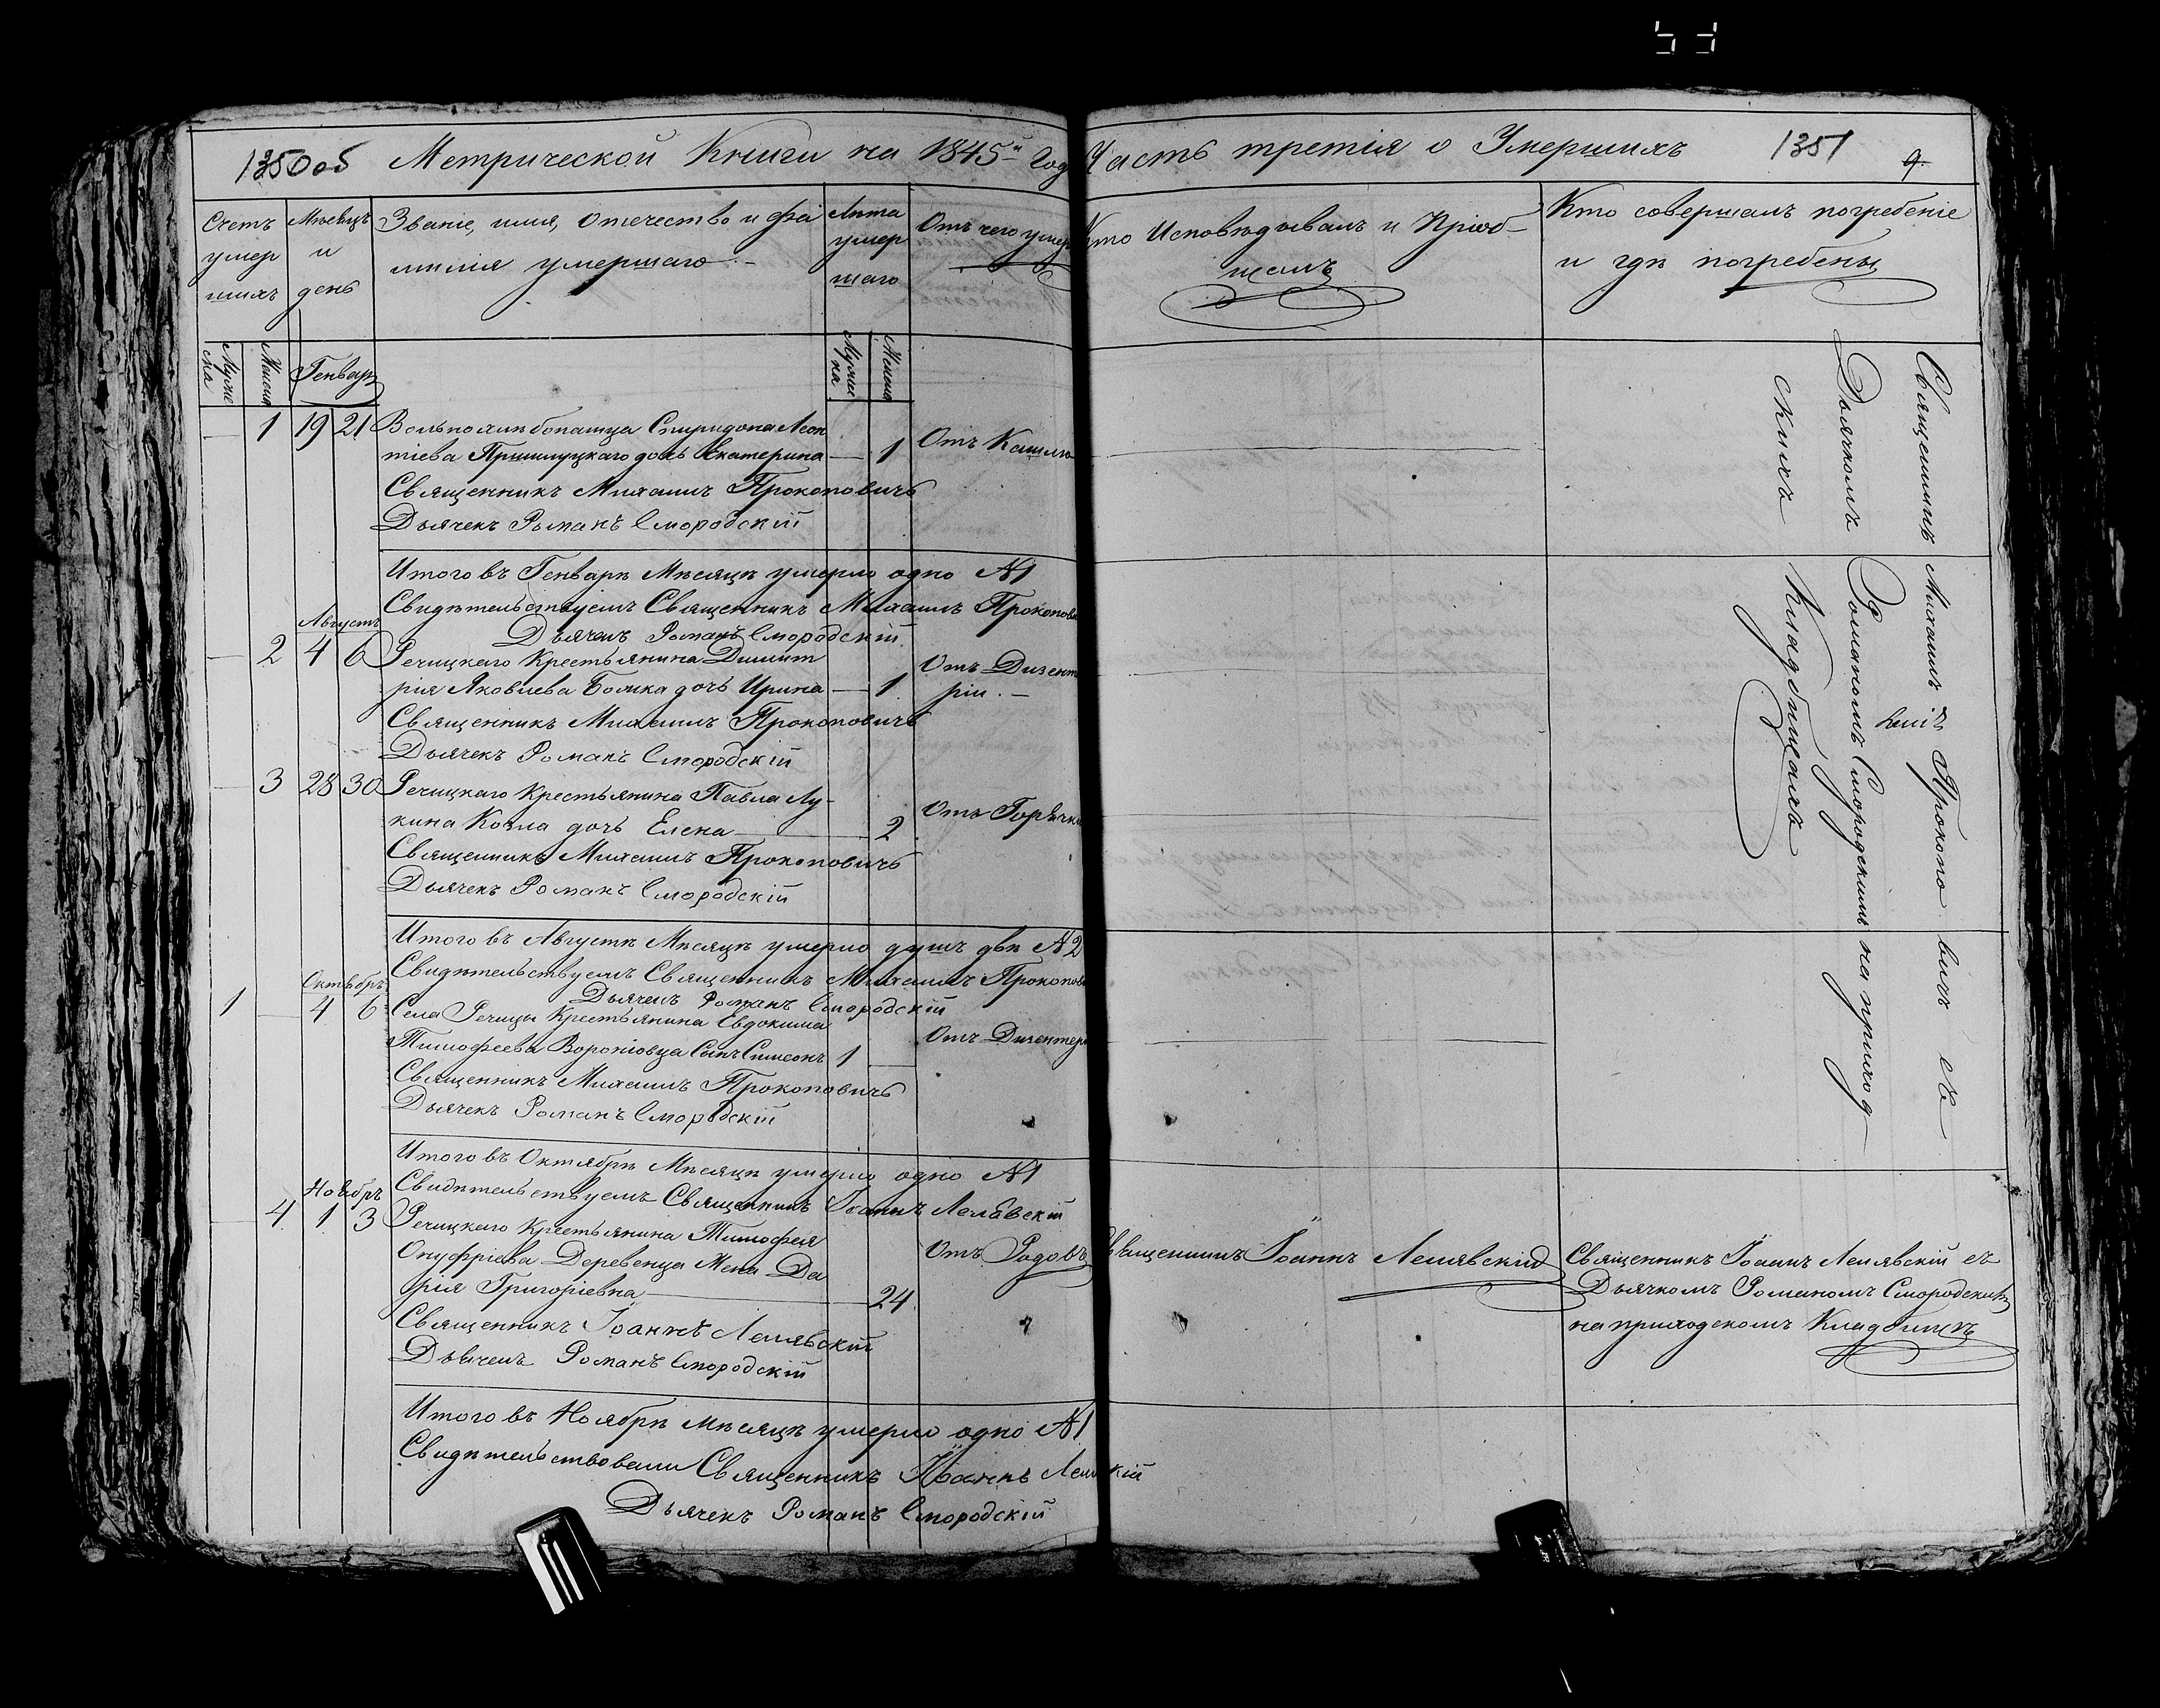 1350об Метрической Книги на 1845й Год
Счетъ умер шихъ
Мѣсяцъ и день
Званіе, имя, отечество и фа
милія умершаго
Лѣта умер шаго
Отъ чего умер
Муже ска
Женска
Генварь
Муже ска
Женска
1 19 21 Вольноплѣбопашца Спиридона Леон
тіева Пришлуцкаго дочь Екатерина 1 Отъ Кашлю
Священникъ Михаилъ Прокоповичъ
Дьячекъ Романъ Смородскій
Итого въ Генварѣ Мѣсяцѣ умерло одно №1
Свидѣтельствуемъ Священникъ Михаилъ Прокопови
Дьячекъ Романъ Смородскій
Августъ
2 4 6 Речицкаго Крестьянина Димит
рія Яковлева Бомка дочь Ирина 1 Отъ Дизент
ріи
Священникъ Михаилъ Прокоповичъ
Дьячекъ Романъ Смородскій
3 28 30 Речицкаго Крестьянина Павла Лу-
кина Козла дочь Елена 2 Отъ Горячки
Священникъ Михаилъ Прокоповичъ
Дьячекъ Романъ Смородскій
Итого въ Августѣ Мѣсяцѣ умерло душъ двѣ №2
Свидѣтельствуемъ Священникъ Михаилъ Прокопови
Дьячекъ Романъ Смородскій
Октябрь
1 4 6 Села Речицы Крестьянина Евдокима
Тимофеева Вороновца Сынъ Симеонъ 1 Отъ Дизентер
Священникъ Михаилъ Прокоповичъ
Дьячекъ Романъ Смородскій
Итого въ Октябрѣ Мѣсяцѣ умерло одно №1
Свидѣтельствуемъ Священникъ Іоаннъ Лелявскій
Ноябрь
4 1 3 Речицкаго Крестьянина Тимофея
Онуфріева Деревенца Жена Да
рія Григоріевна 24 Отъ Родовъ
Священникъ Іоаннъ Лелявскій
Дьячекъ Романъ Смородскій
Итого въ Ноябрѣ Мѣсяцѣ умерло одно №1
Свидѣтельствовали Священникъ Іоаннъ Леля кій
Дьячекъ Романъ Смородскій
Часть третія о Умершихъ 1351 9.
Кто Исповѣдывалъ и Пріоб-
щалъ
Кто совершалъ погребеніе
и гдѣ погребены
Священникъ Михаилъ Прокоповичъ съ
Дьячкомъ Романомъ Смородскимъ на приход
скихъ Кладбищахъ
Священникъ Іоаннъ Лелявскій
Священникъ Іоаннъ Лелявскій съ
Дьячкомъ Романомъ Смородскимъ
на приходскомъ Кладбищѣ